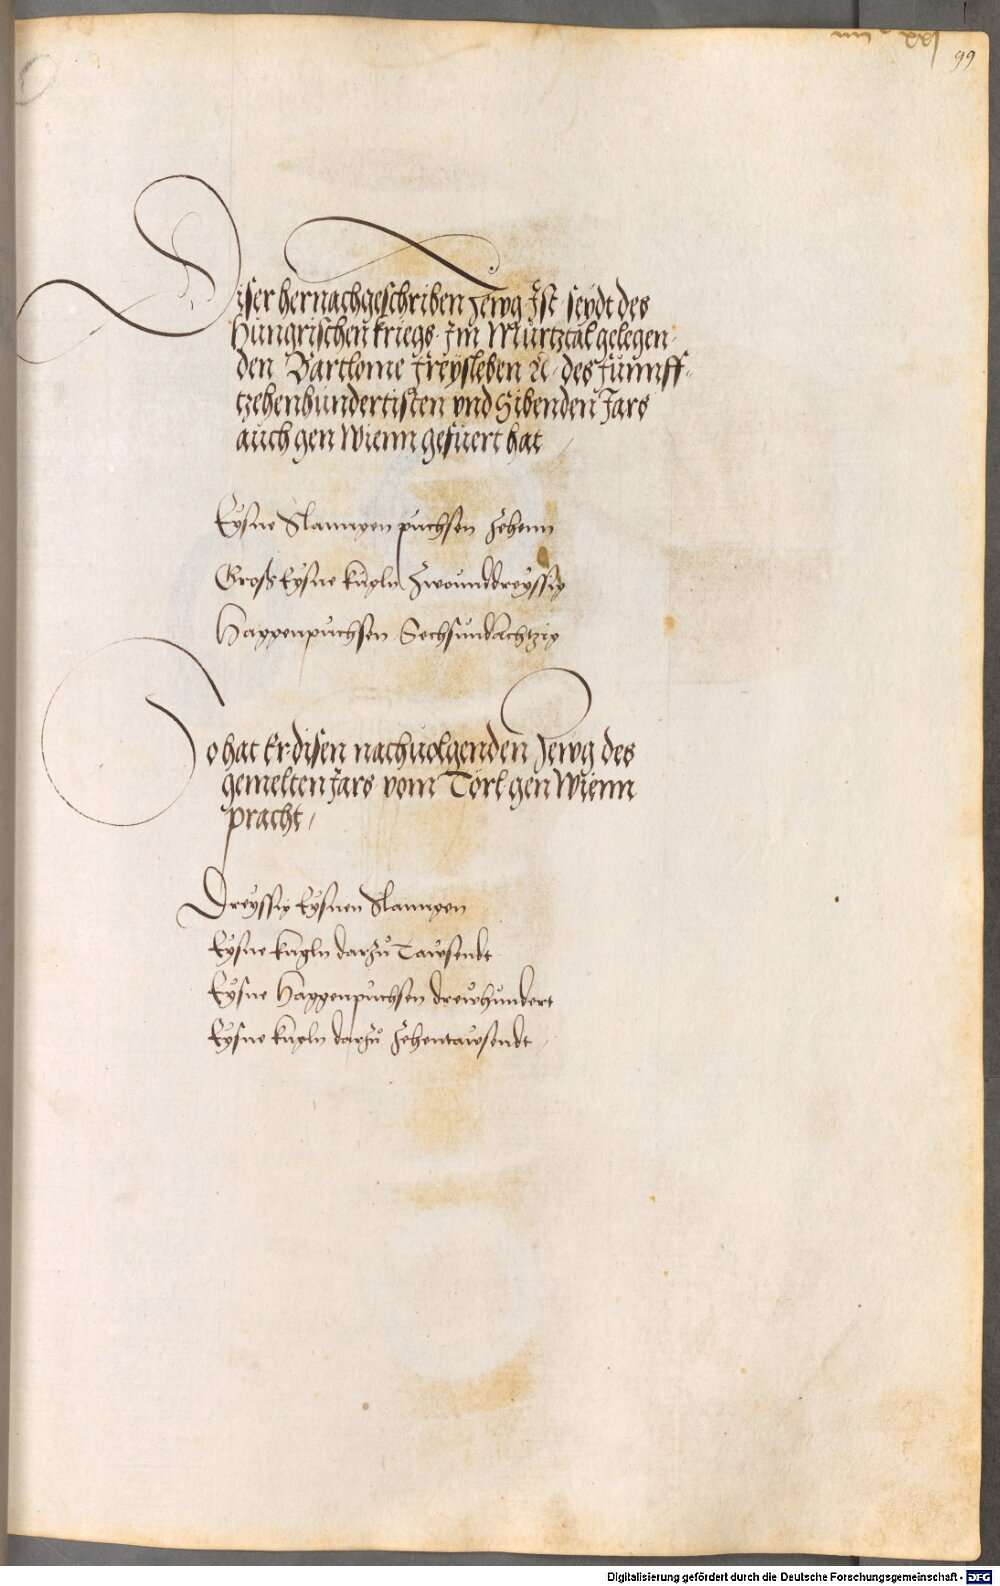 99
Diser hernachgeschriben Zewg Ist seydt des
Hungrischen kriegs Im Mürtztal gelegen
den Bartlome Freysleben &c. des Funnff
tzehenhundertisten vnd Sibenden Jars
auch gen Wienn gefuert hat
Eysne Slanngen puchsen Zehenn
Groß Eysne kugln Zwounddreyssig
Haggenpuchsen Sechsundachtzig
So hat Er disen nachuolgenden Zewg des
gemelten Jars vom Törl gen Wienn
pracht
Dreyssig Eysnen Slanngen
Eysne kugln darzů Tawsendt
Eysne Haggenpuchsen drewhundert
Eysne kugln darzů Zehentawsendt
Digitalisierung gefördert durch die Deutsche Forschungsgemeinschaft - DFG